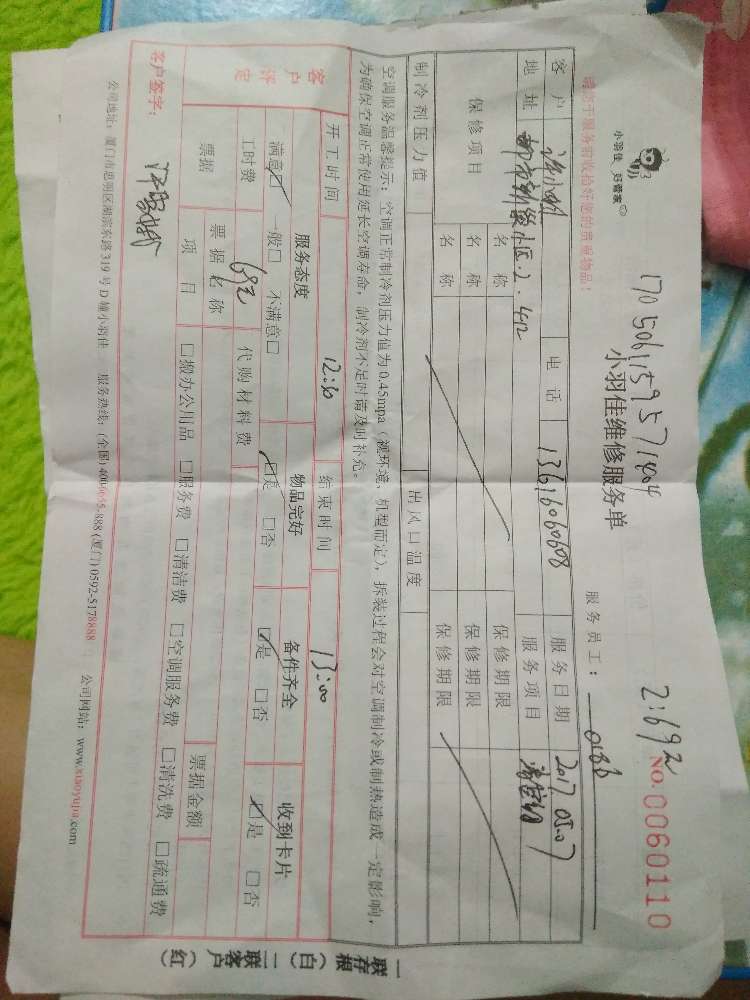 小羽佳 好管家
170506115957404
2:69元
小羽佳维修服务单
NO.0060110
请您于服务前收拾好您的贵重物品!
服务员工: 0186
客户 电话 13616060608 服务日期 2017.05.07
地址 都市新级小区.2.402 服务项目
保修项目 名称 保修期限
名称 保修期限
名称 保修期限
制冷剂压力值 出风口温度
空调服务温馨提示:空调正常制冷剂压力值为0.45mpa(视环境、机型而定),拆装过程会对空调制冷或制热造成一定影响,
为确保空调正常使用延长空调寿命,制冷剂不足时请及时补充。
开工时间 12:30 结束时间 13:00
客户评定 服务态度 物品完好 备件齐全 收到卡片
满意☑ 一般□ 不满意□ ☑是 □否 ☑是 □否 ☑是 □否
工时费 69元 代购材料费
票据 票据名称 票据金额
项目 □搬办公用品 □服务费 □清洁费 □空调服务费 □清洗费 □疏通费
客户签字:
公司地址:厦门市思明区湖滨东路319号D幢小羽佳 服务热线:(全国)4000655-888 (厦门)0592-5178888 公司网站:www.xiaoyujia.com
一联存根(白) 二联客户(红)